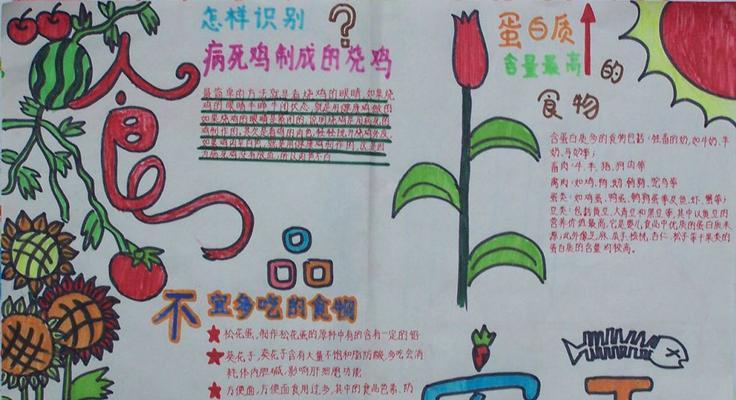 食
怎样识别?
病死鸡制成的烧鸡
最简单的方法就是看烧鸡的眼睛,如果烧
鸡的眼睛半睁半闭状态,就是用健康鸡做的
如果烧鸡的眼睛是
鸡制作的,其次是看鸡的肉色,轻轻挑开烧鸡外皮,
如果鸡肉呈白色,就是用健康鸡制作的
不宜多吃的食物
★松花蛋,制作松花蛋的原料中有的含有一定的铅
★葵花子,葵花子含有大量不饱和脂肪酸,多吃会消
耗体内胆碱,影响肝细胞功能
★方便面,方便面食用过多,其中的食品色素、防
蛋白质
含量最高的
食物
含蛋白质多的食物包括:牲畜的奶,如牛奶、羊
奶、马奶等;
畜肉:牛、羊、猪、狗肉等
禽肉:如鸡、鸭、鹅、鹌鹑、鸵鸟等
蛋类:如鸡蛋、鸭蛋、鹌鹑蛋等及鱼、虾、蟹等;
豆类:包括黄豆、大青豆和黑豆等,其中以黄豆的
营养价值最高,它是婴儿食品中优质的蛋白质来
源;此外像芝麻、瓜子、核桃、杏仁、松子等干果类的
蛋白质的含量均较高。